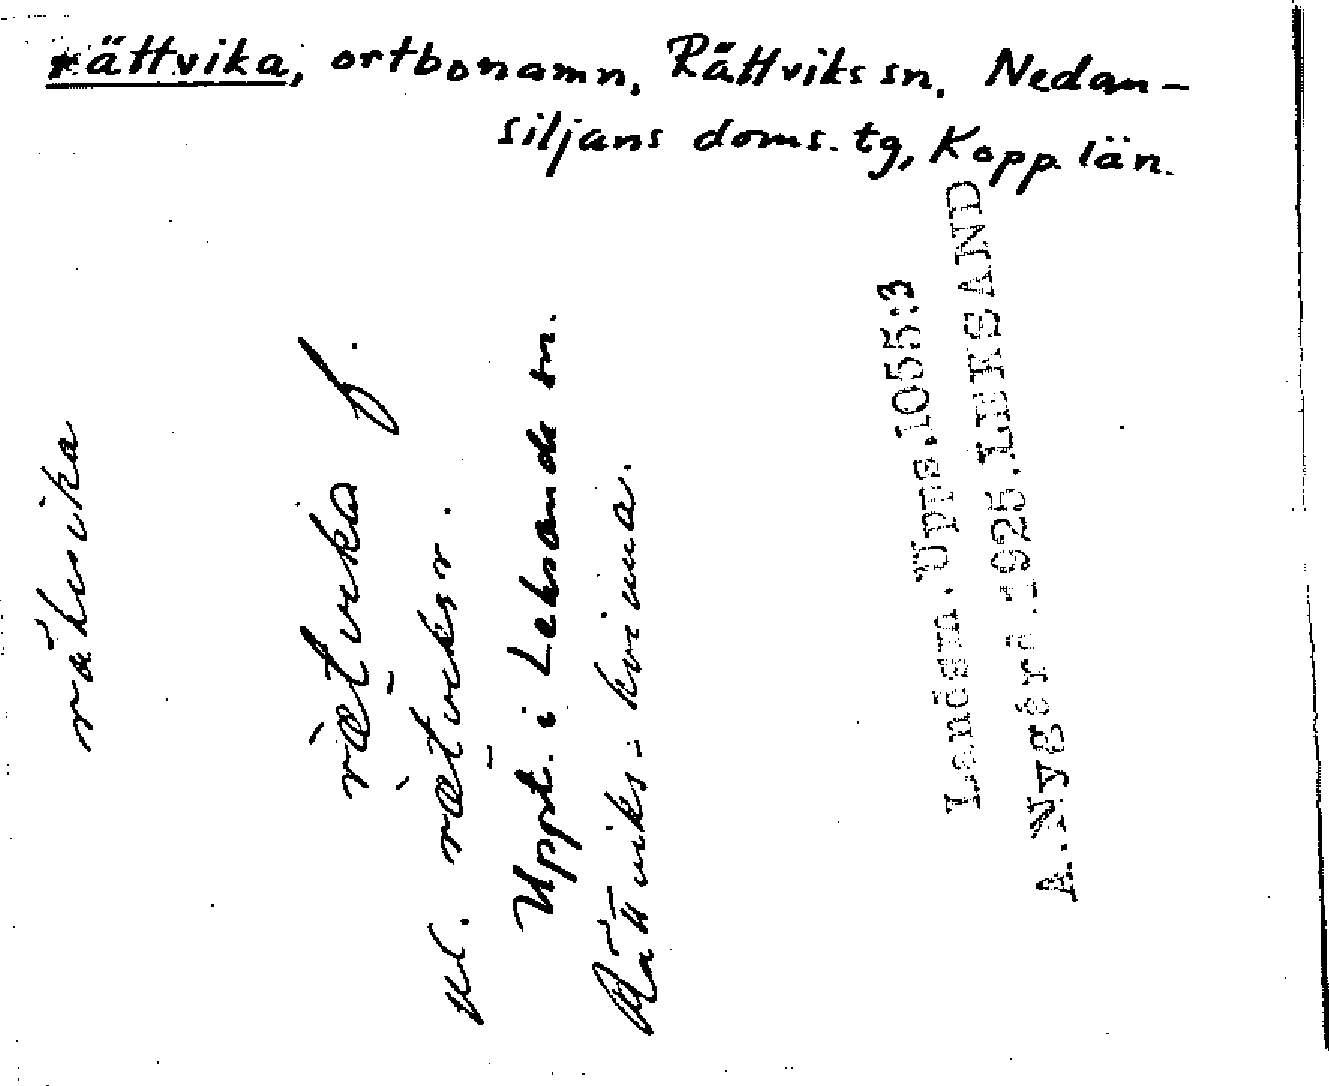 rättvika, ortbonamn, Rättviks sn, Nedan-
siljans doms. tg, Kopp. län.
rättvika
rætvika f.
pl. rætviksr.
Uppt. i Leksands sn.
Rättviks-kvinna.
Landsm. Upps. 1055:3
A. Nygård. 1925. LEKSAND